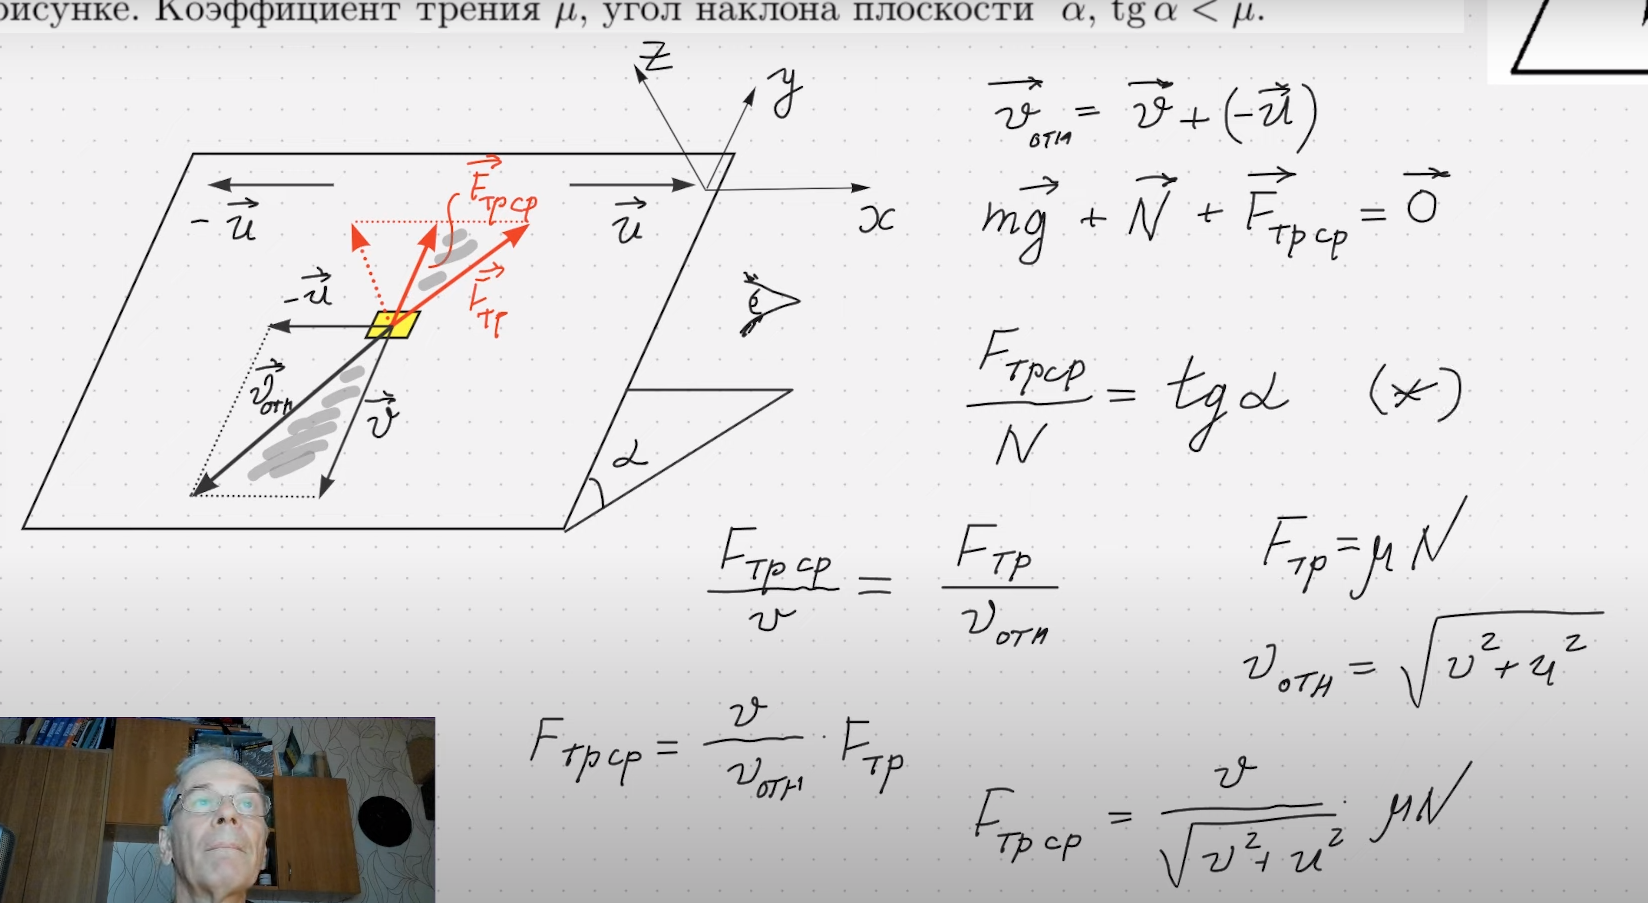 рисунке. Коэффициент трения μ, угол наклона плоскости α, tg α < μ.
z
y
x
-u⃗
u⃗
F⃗тр ср
F⃗тр
-u⃗
v⃗отн
v⃗
α
v⃗отн = v⃗ + (-u⃗)
mg⃗ + N⃗ + F⃗тр ср = 0⃗
Fтр ср / N = tg α (*)
Fтр ср / v = Fтр / vотн
Fтр = μN
vотн = √(v² + u²)
Fтр ср = v / vотн · Fтр
Fтр ср = v / √(v² + u²) · μN